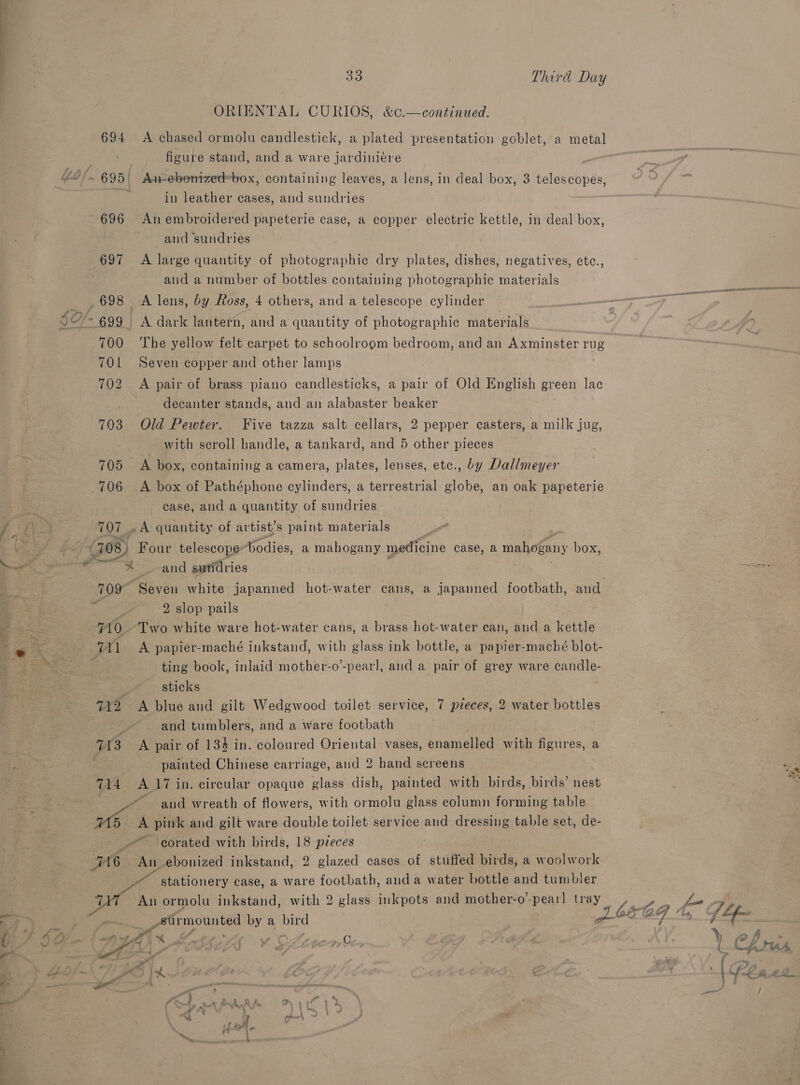 33 Third Day
ORIENTAL CURIOS, &c.—continued.
694 A chased ormolu candlestick, a plated presentation goblet, a metal
figure stand, and a ware jardinière
695 An ebonized box, containing leaves, a lens, in deal box, 3 telescopes,
in leather cases, and sundries
696 An embroidered papeterie case, a copper electric kettle, in deal box,
and sundries
697 A large quantity of photographic dry plates, dishes, negatives, etc.,
and a number of bottles containing photographic materials
698 A lens, by Ross, 4 others, and a telescope cylinder
699 A dark lantern, and a quantity of photographic materials
700 The yellow felt carpet to schoolroom bedroom, and an Axminster rug
701 Seven copper and other lamps
702 A pair of brass piano candlesticks, a pair of Old English green lac
decanter stands, and an alabaster beaker
703 Old Pewter. Five tazza salt cellars, 2 pepper casters, a milk jug,
with scroll handle, a tankard, and 5 other pieces
705 A box, containing a camera, plates, lenses, etc., by Dallmeyer
706 A box of Pathéphone cylinders, a terrestrial globe, an oak papeterie
case, and a quantity of sundries
707 A quantity of artist's paint materials
708 Four telescope bodies, a mahogany medicine case, a mahogany box,
and sundries
709 Seven white japanned hot-water cans, a japanned footbath, and
2 slop pails
710 Two white ware hot-water cans, a brass hot-water can, and a kettle
711 A papier-maché inkstand, with glass ink bottle, a papier-maché blot-
ting book, inlaid mother-o'-pearl, and a pair of grey ware candle-
sticks
712 A blue and gilt Wedgwood toilet service, 7 pieces, 2 water bottles
and tumblers, and a ware footbath
713 A pair of 13½ in. coloured Oriental vases, enamelled with figures, a
painted Chinese carriage, and 2 hand screens
714 A 17 in. circular opaque glass dish, painted with birds, birds' nest
and wreath of flowers, with ormolu glass column forming table
715 A pink and gilt ware double toilet service and dressing table set, de-
corated with birds, 18 pieces
716 An ebonized inkstand, 2 glazed cases of stuffed birds, a woolwork
stationery case, a ware footbath, and a water bottle and tumbler
717 An ormolu inkstand, with 2 glass inkpots and mother-o'-pearl tray
surmounted by a bird